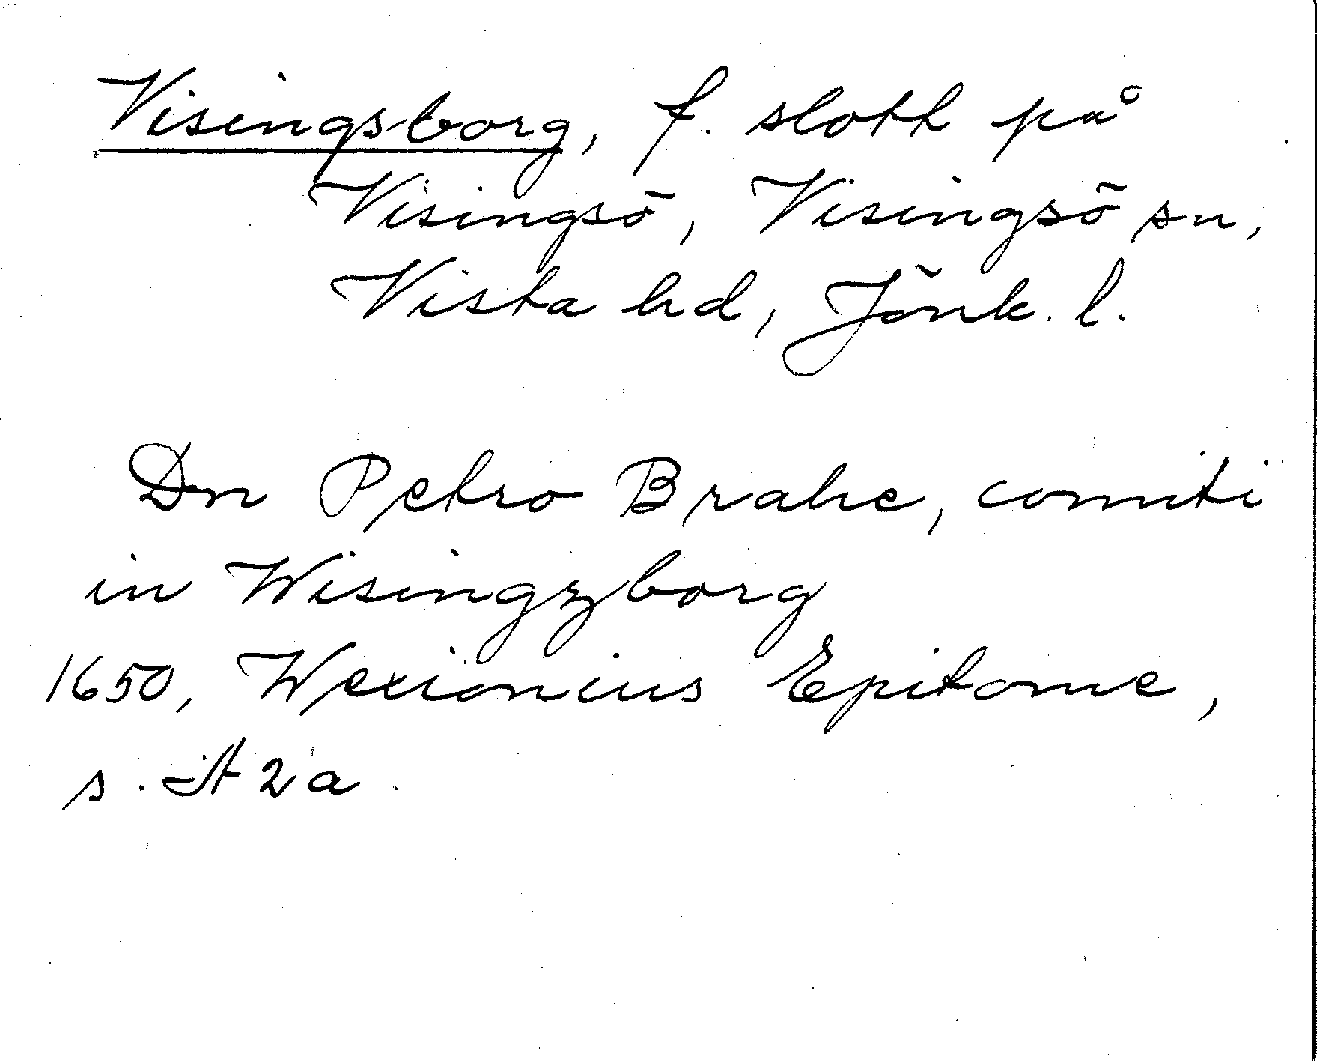 Visingsborg, f. slott på
Visingsö, Visingsö sn,
Vista hd, Jönk. l.
Dn Petro Brahe, comiti
in Wisingzborg
1650, Wexionius Epitome,
s. A 2 a.